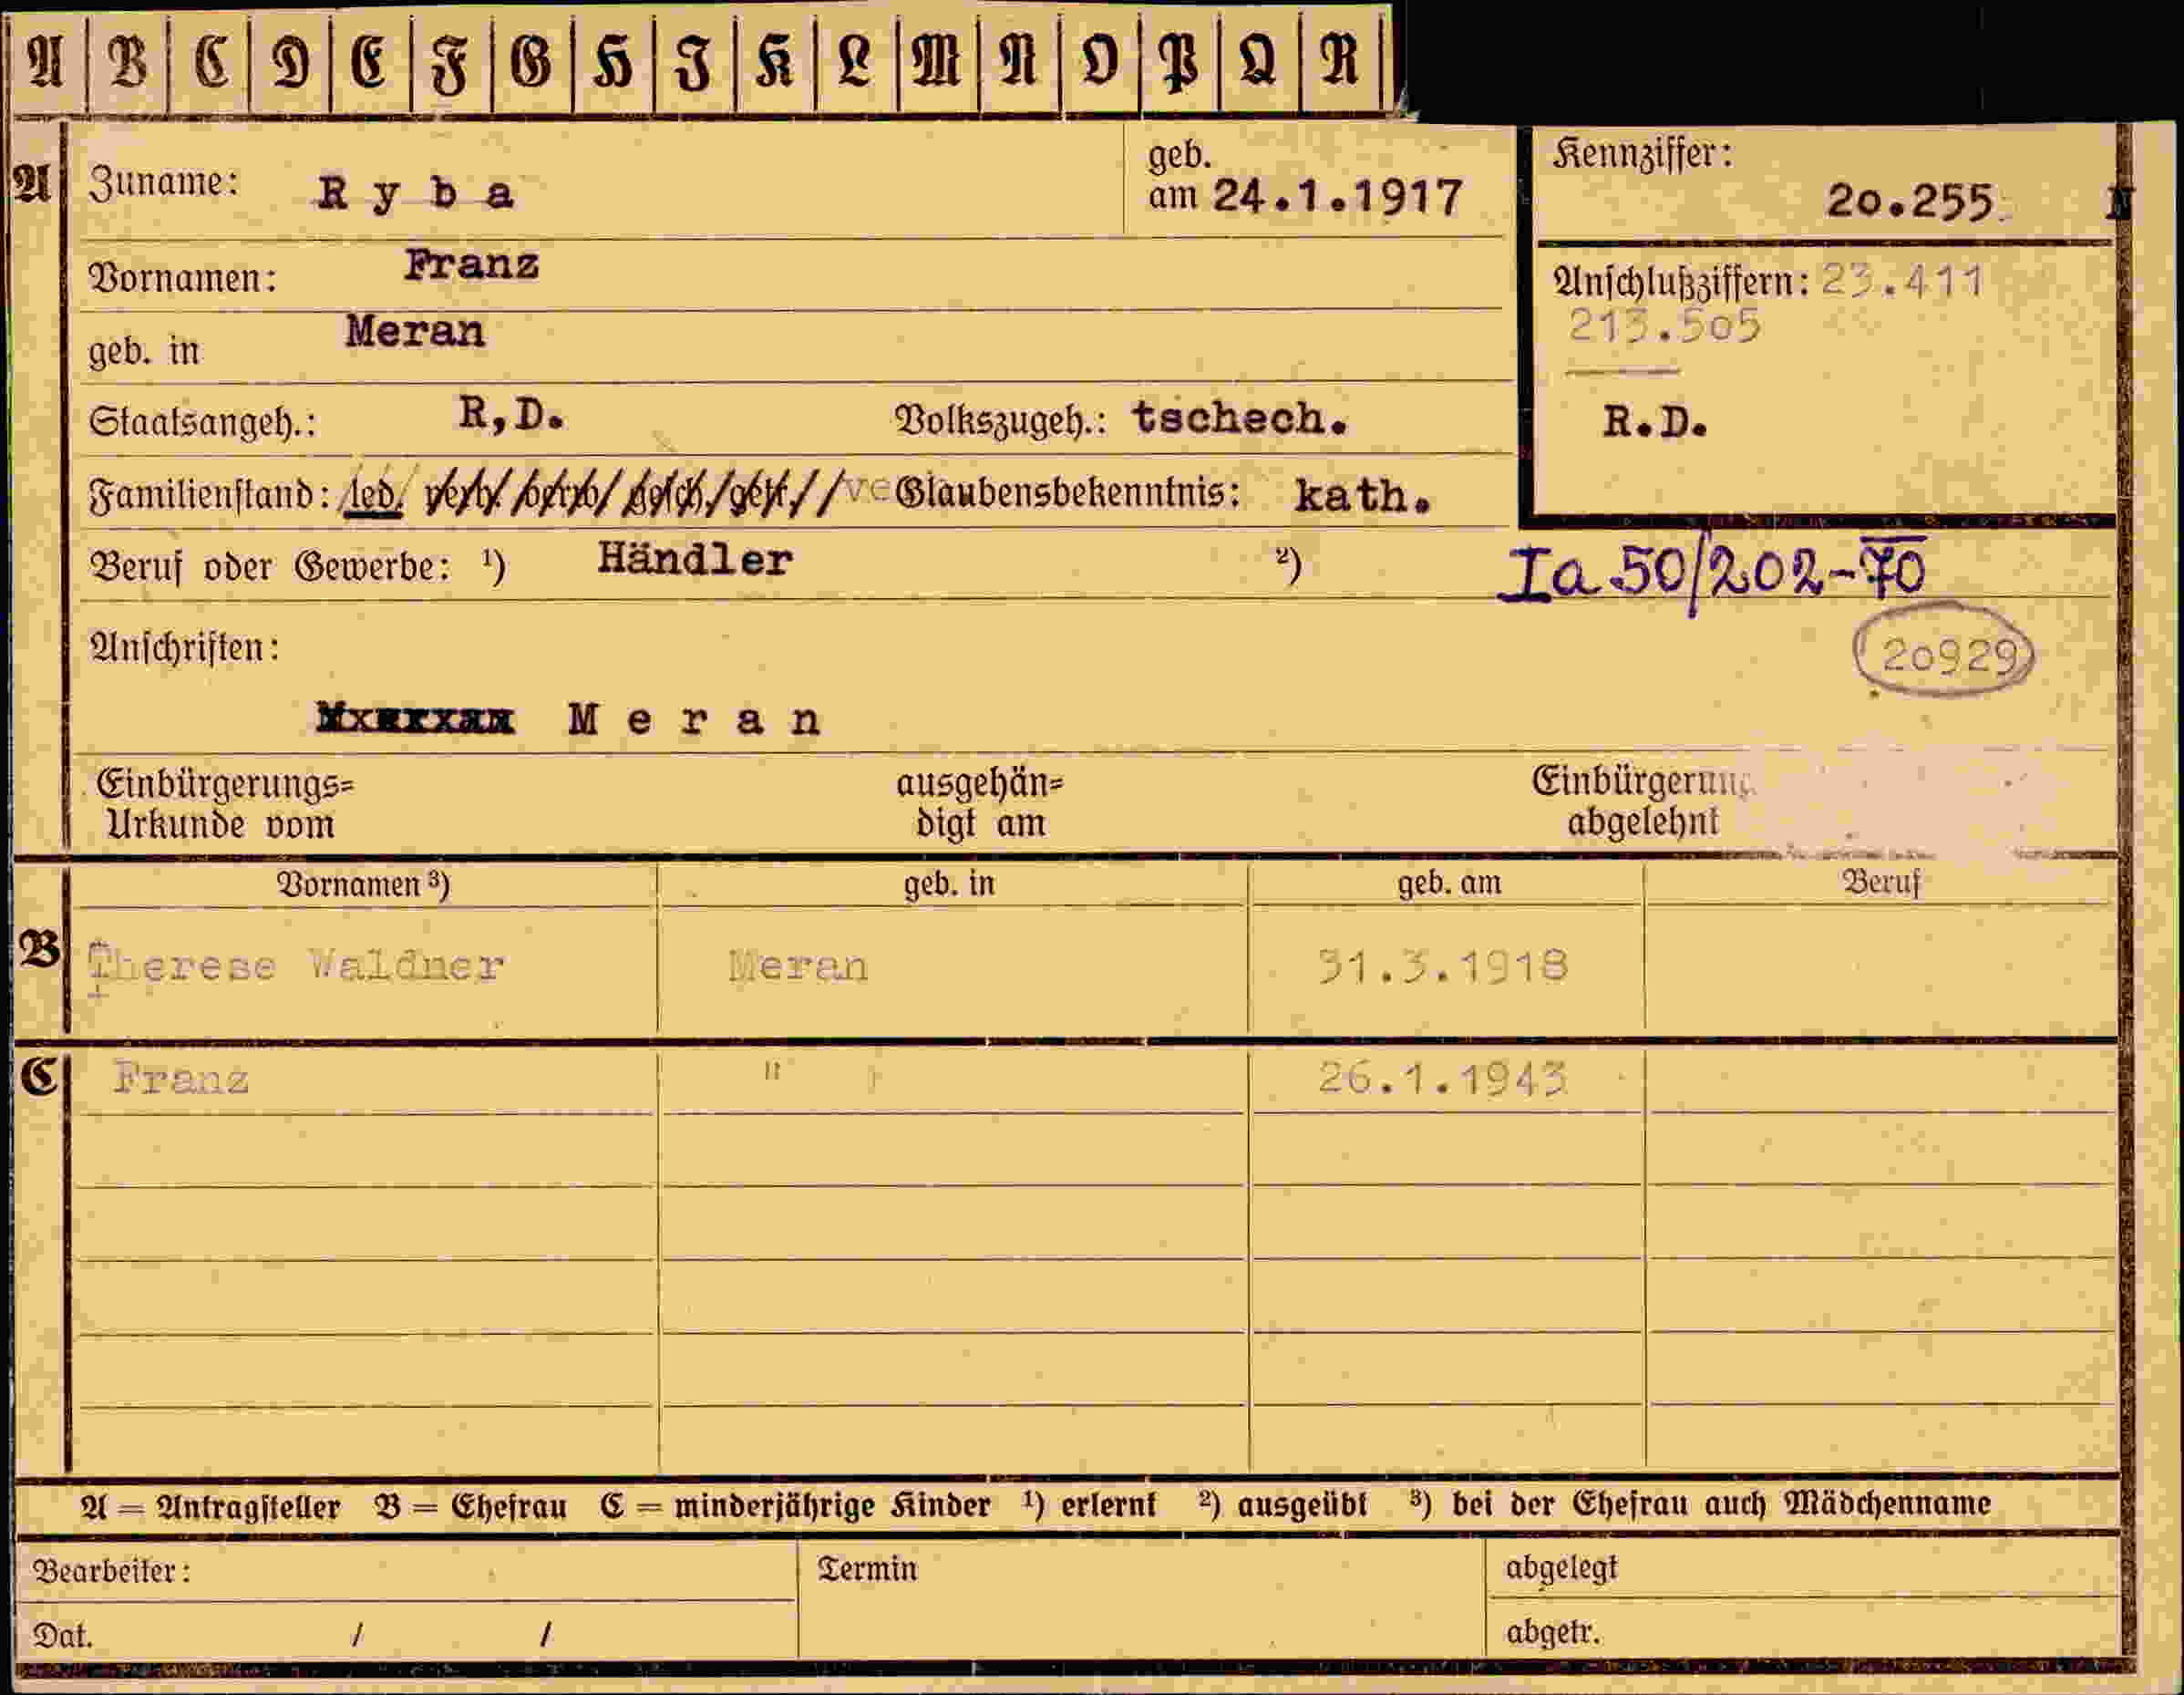 A B C D E F G H I K L M N O P Q R
A Zuname: Ryba geb. am 24.1.1917
Kennziffer: 20.255. N
Vornamen: Franz
Anschlußziffern: 23.411
213.505
geb. in Meran
Staatsangeh.: R,D. Volkszugeh.: tschech.
R.D.
Familienstand: led. verh. verw. gesch. getr. ve Glaubensbekenntnis: kath.
Beruf oder Gewerbe: ¹) Händler ²)
Ia 50/202-70
Anschriften:
20929
Meran
Einbürgerungs= ausgehän= Einbürgerung
Urkunde vom digt am abgelehnt
Vornamen ³) geb. in geb. am Beruf
B Therese Waldner Meran 31.3.1918
C Franz " 26.1.1943
A = Antragsteller B = Ehefrau C = minderjährige Kinder ¹) erlernt ²) ausgeübt ³) bei der Ehefrau auch Mädchenname
Bearbeiter: Termin abgelegt
Dat. / / abgetr.